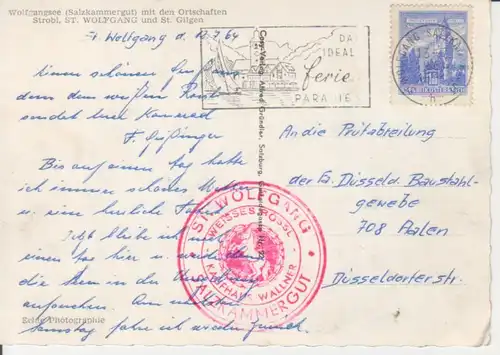 Wolfgangsee (Salzkammergut) mit den Ortschaften
Strobl, ST. WOLFGANG und St. Gilgen
St. Wolfgang d. 12.7.64
Einen schönen Gruß aus
dem weißen Rössl
sendet Euer Kamerad
F.
Bis auf einen Tag hatte
ich immer schönes Wetter
u. eine herrliche Fahrt
Jetzt bleibe ich noch
einen Tag hier u. werde dann
die in der
aufsuchen. Am
Samstag fahre ich wieder zurück
Echte Photographie
Cosy-Verlag Alfred Gründler, Salzburg,
DA
IDEAL
ferie
PARADIE
ST. WOLFGANG
WEISSES RÖSSL
WALLNER
SALZKAMMERGUT
An die Prüfabteilung
der Fa. Düsseld. Baustahl-
gewebe
708 Aalen
Düsseldorferstr.